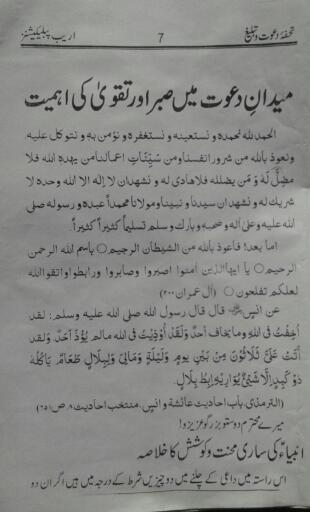 تحفۂ دعوت و تبلیغ 7 اریب پبلیکیشنز
میدانِ دعوت میں صبر اور تقویٰ کی اہمیت
الحمد للہ نحمدہ و نستعینه و نستغفرہ و نؤمن به و نتوکل علیه
ونعوذ باللہ من شرور انفسنا ومن سیّئات اعمالنا من یھدہ اللہ فلا
مضلّ له و من یضلله فلاھادی له و نشھدان لا اله الا اللہ وحدہ لا
شریك له و نشھدان سیدنا و نبینا ومولانا محمداً عبدہ و رسوله صلی
اللہ علیه وعلی اٰله و صحبه وبارك و سلم تسلیماً کثیراً کثیراً۔
اما بعد! فاعوذ باللہ من الشیطان الرجیم○ باسم اللہ الرحمن
الرحیم○ یا ایھا الذین امنوا اصبروا وصابروا ورابطوا واتقوا اللہ
لعلکم تفلحون○ (آل عمران ۲۰۰)
عن انسؓ قال قال رسول اللہ صلی اللہ علیه وسلم: لقد
اُخِفتُ فی اللہِ وما یخاف احدٌ وَلَقَدْ اُوْذِیْتُ فی اللہ مالم یُؤذَ اَحدٌ۔ ولقد
اَتَتْ عَلَیَّ ثَلَاثُوْنَ مِنْ بَیْنِ یومٍ وَلَیْلَةٍ وَمَالِیْ وَلِبِلَالٍ طَعَامٌ یَاکُلُهُ
ذوکبِدٍ اِلَّا شَیْئٌ یُوَارِیْهِ اِبِطُ بِلَالٍ۔
(الترمذی، باب احادیث عائشة و انس، منتخب احادیث ۸ ص)
میرے محترم دوستو بزرگو عزیزو!
انبیاءؑ کی ساری محنت و کوشش کا خلاصہ
اس راستہ میں داعی کے چلنے میں دو چیزیں شرط کے درجہ میں ہیں اگر ان دو